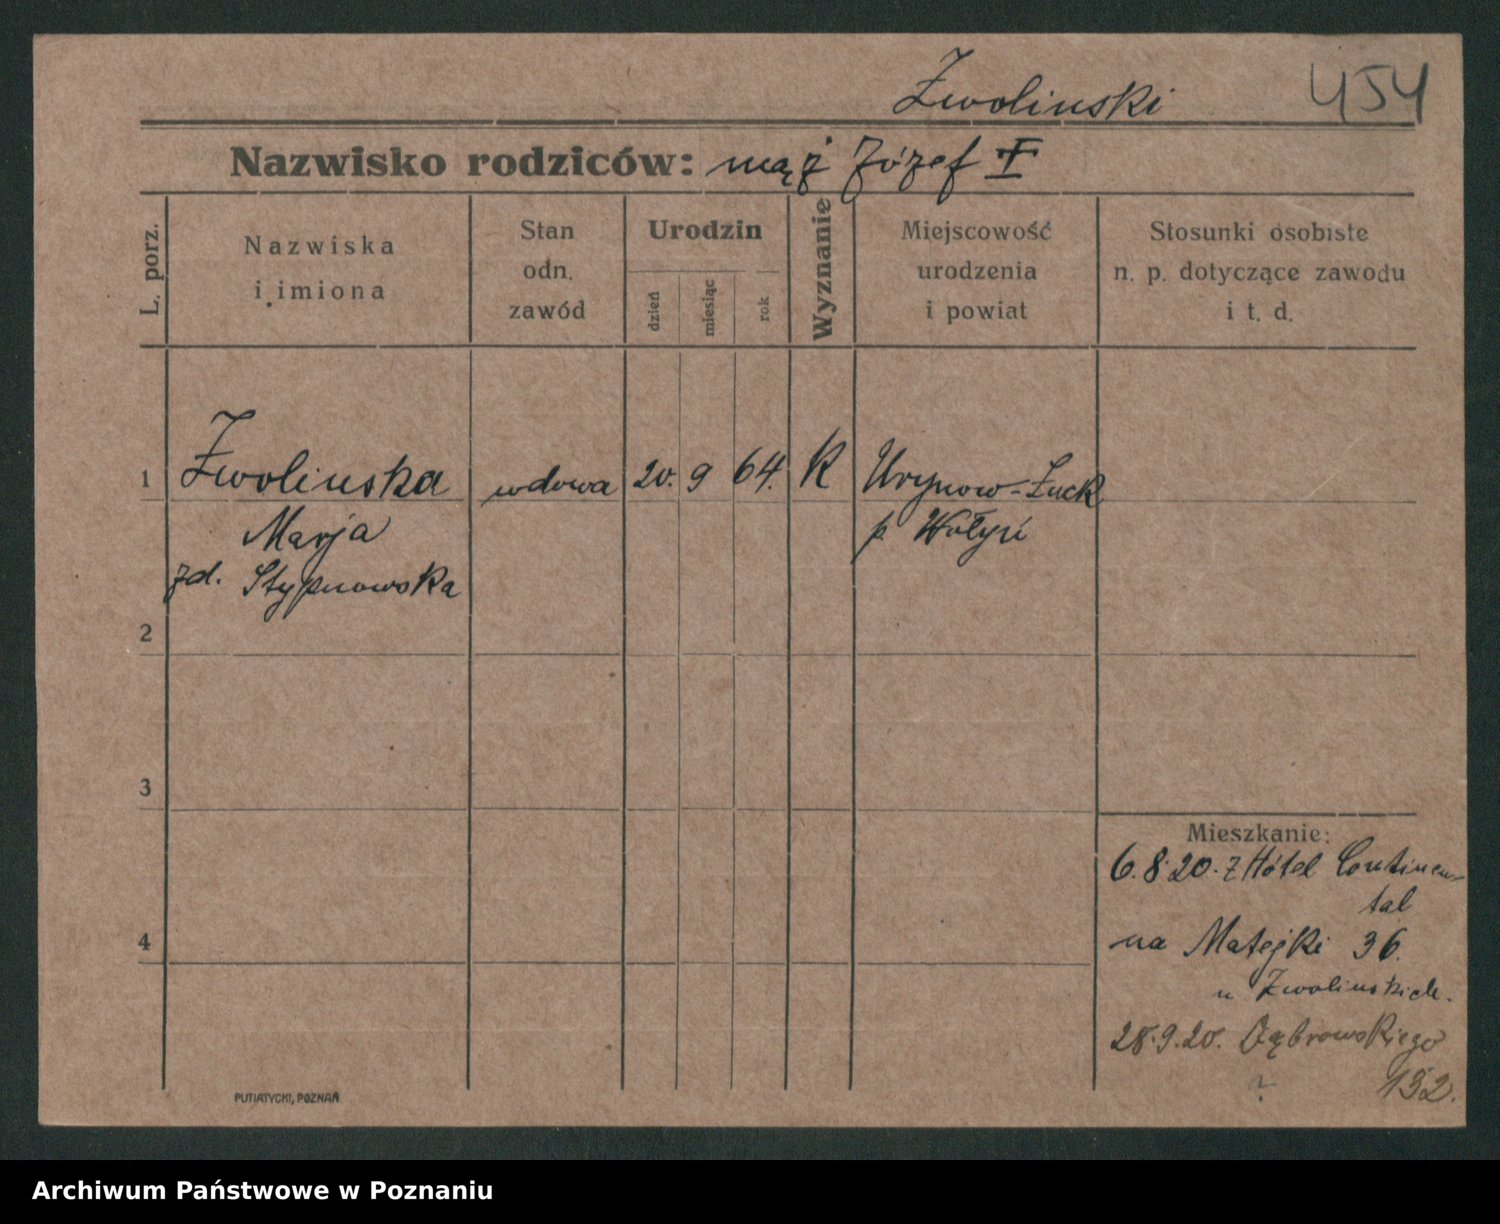 Zwolinski 454
Nazwisko rodziców: mąż Józef
L. porz.
Nazwiska
i imiona
Stan
odn.
zawód
Urodzin
dzień
miesiąc
rok
Wyznanie
Miejscowość
urodzenia
i powiat
Stosunki osobiste
n. p. dotyczące zawodu
i t. d.
1 Zwolinska wdowa 20. 9 64. K Urynow-Łuck
Marja p. Wołyń
zd. Stypnowska
2
3
4
Mieszkanie:
6.8.20. z Hôtel Continen-
tal
na Matejki 36.
u Zwolinskich.
28.9.20. Dąbrowskiego
? 132.
PUTIATYCKI, POZNAŃ
Archiwum Państwowe w Poznaniu